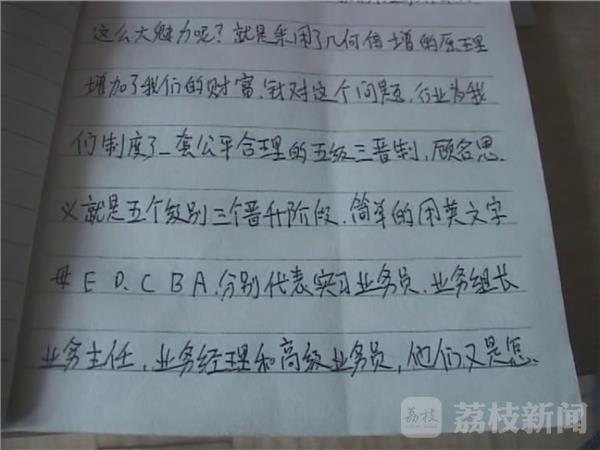 这么大魅力呢?就是采用了几何倍增的原理
增加了我们的财富.针对这个问题,行业为我
们制度了一套公平合理的五级三晋制,顾名思
义就是五个级别三个晋升阶段.简单的用英文字
母E D、C B A.分别代表实习业务员、业务组长
业务主任,业务经理和高级业务员,他们又是怎
荔枝
荔枝新闻